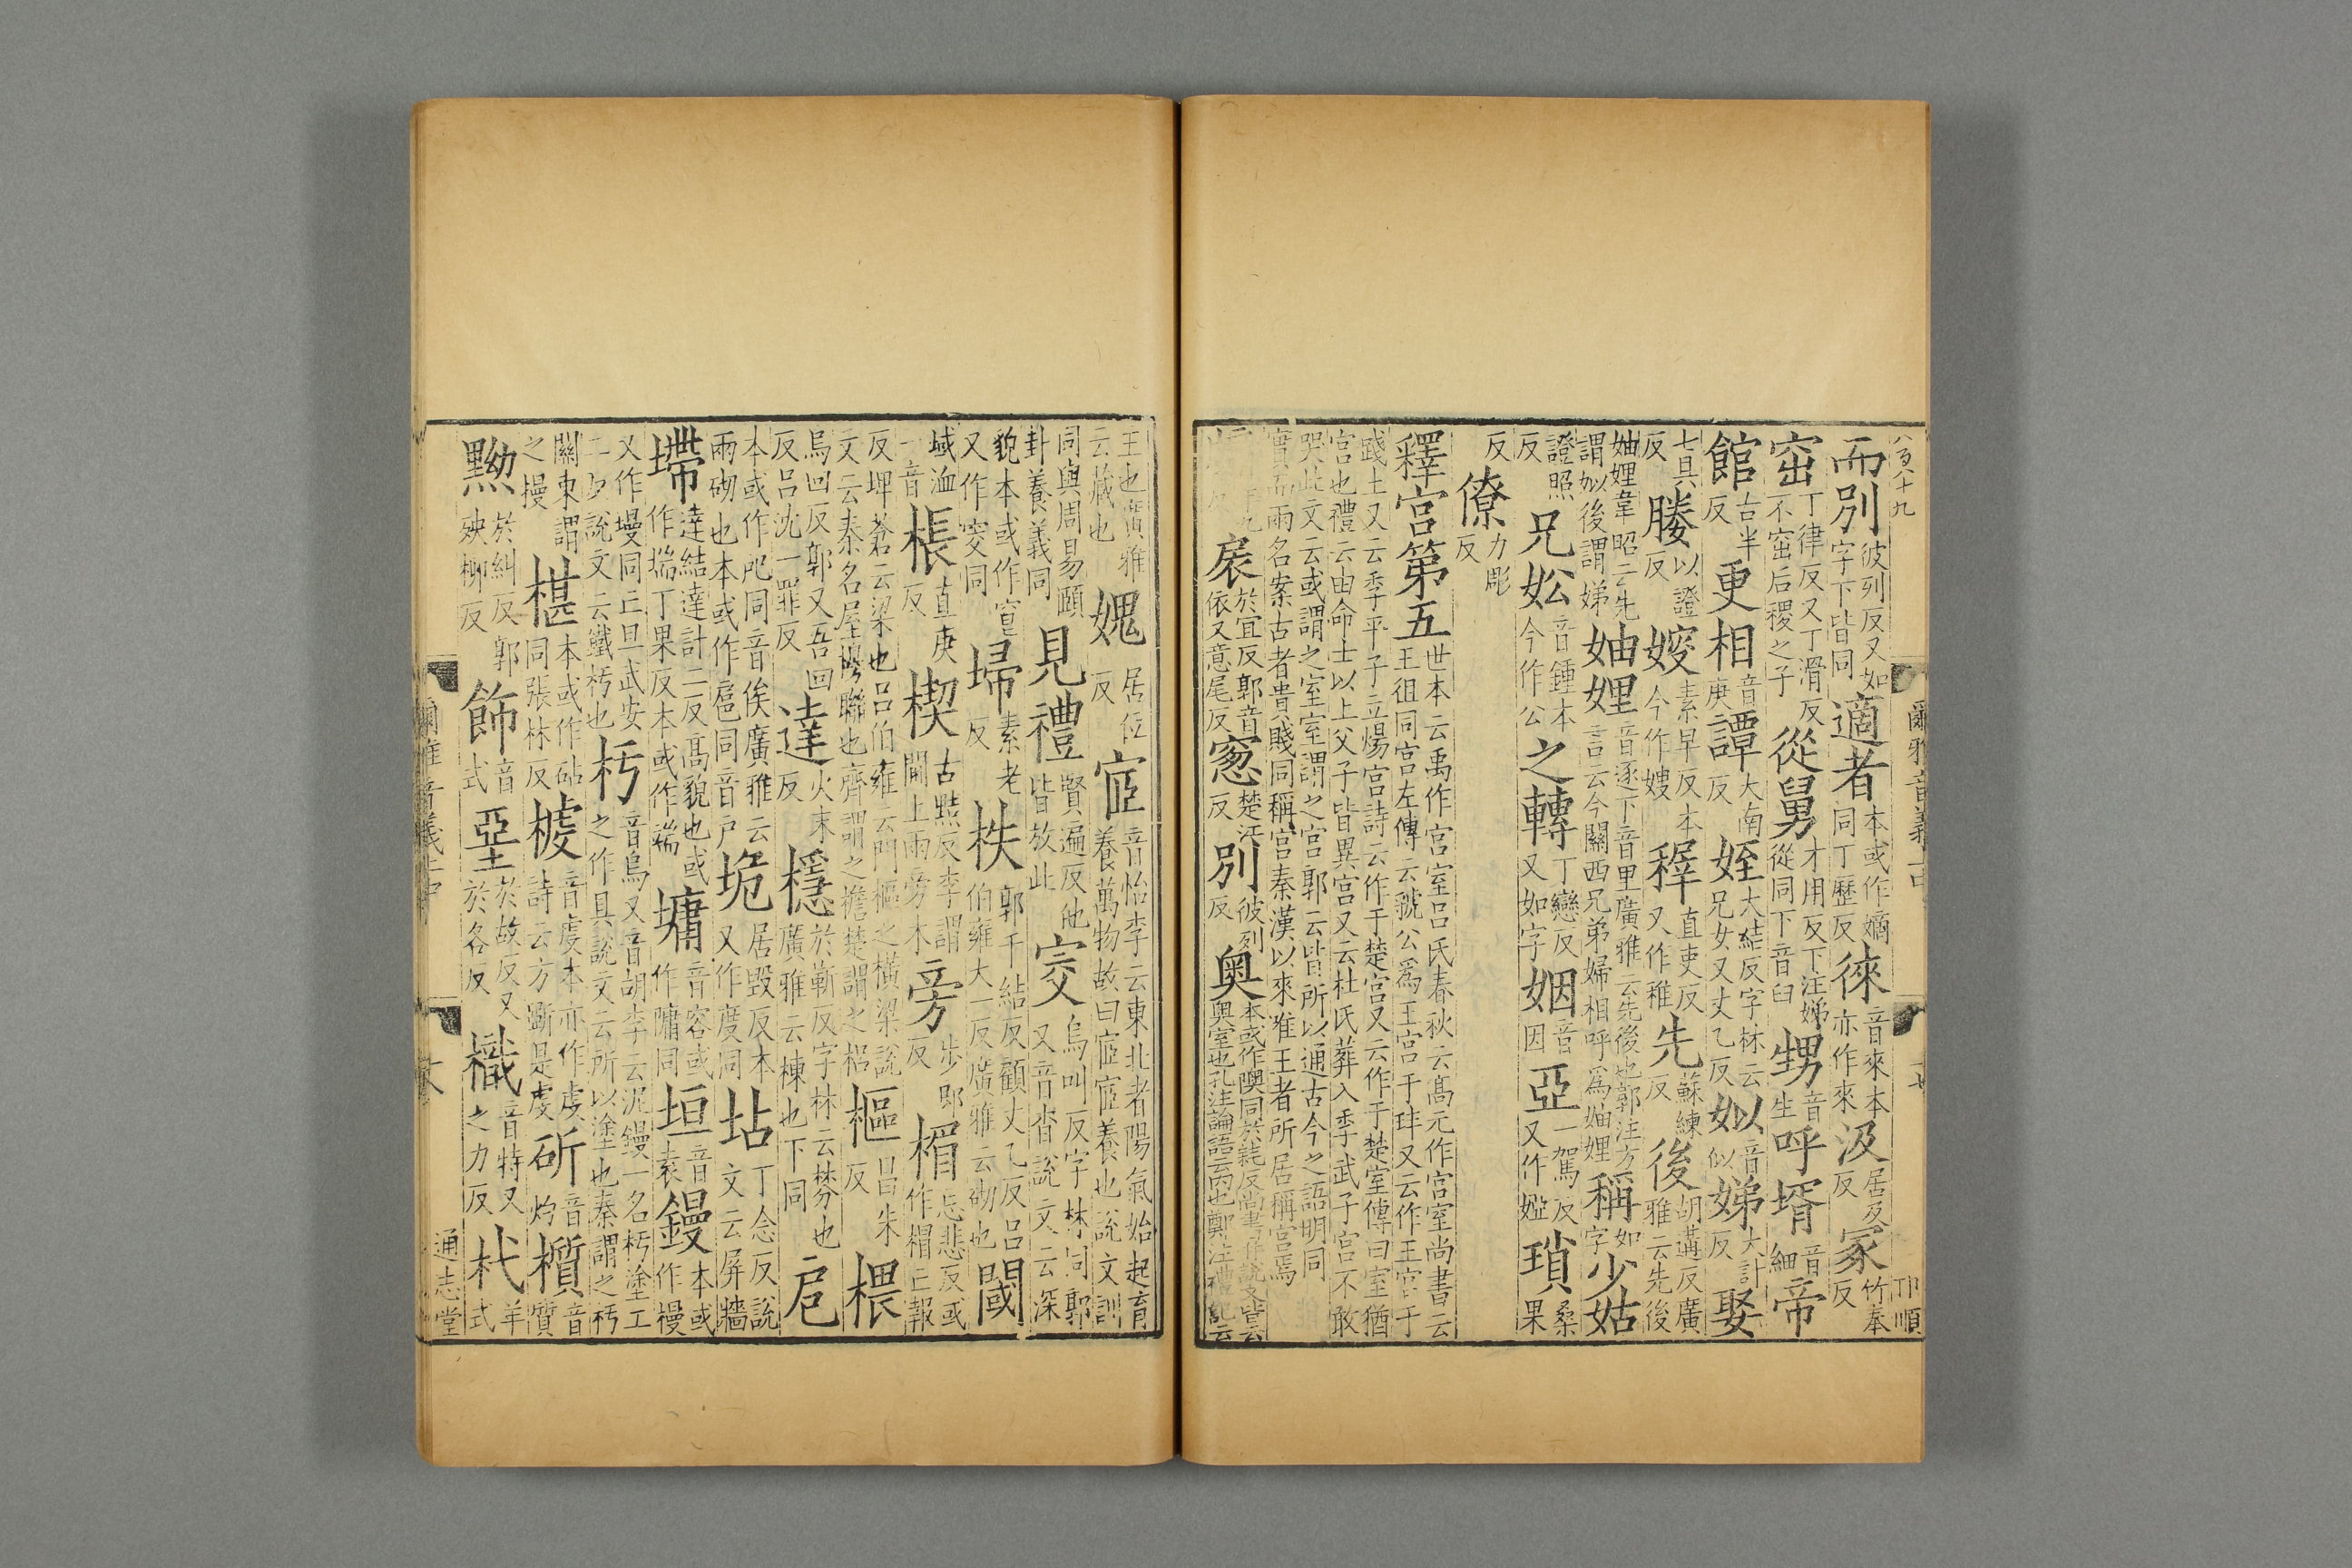 八百八十九
爾雅音義上中
邝順
而別彼列反又如字下皆同適者本或作嫡同丁歷反徠音來本亦作來汲居及反冢竹奉反
窋丁律反又丁滑反不窋后稷之子從舅才用反下注娣從同下音臼甥音生呼壻音細帝
館古半反更相音庚譚大南反姪大結反字林云兄女又丈乙反姒音似娣大計反娶
七具反媵以證反㛐素早反本今作嫂稺直吏反又作稚先蘇練反後胡遘反廣雅云先後
妯娌韋昭云先謂姒後謂娣妯娌音逐下音里廣雅云先後也郭注方言云今關西兄弟婦相呼爲妯娌稱如字少姑
證照反兄妐音鍾本今作公之轉丁戀反又如字姻音因亞一駕反又作婭瑣桑果
反僚力彫反
釋宮第五世本云禹作宮室呂氏春秋云髙元作宮室尚書云王徂同宮左傳云虢公爲王宮于玤又云作王宮于
踐土又云季平子立煬宮詩云作于楚宮又云作于楚室傳曰室猶宮也禮云由命士以上父子皆異宮又云杜氏葬入季武子宮不敢
哭此文云或謂之室室謂之宮郭云皆所以通古今之語明同實而兩名案古者貴賤同稱宮秦漢以來唯王者所居稱宮焉
扆於宜反郭音依又意尾反窻楚江反別彼列反奥本或作隩同於耗反尚書作說文皆云奥室也孔注論語云內也鄭注禮記云
王也廣雅云藏也媿居位反宧音怡李云東北者陽氣始起育養萬物故曰宧宧養也說文訓
同與周易頤卦養義同見禮賢遍反他皆放此㝔烏叫反字林同郭又音杳說文云深
貌本或作窅又作窔同埽素老反柣郭千結反顧丈乙反呂伯雍大一反廣雅云砌也閾
域洫一音棖直庚反楔古黠反李謂門上兩旁木旁步郎反楣忘悲反或作楣亡報
反埤蒼云梁也呂伯雍云門樞之橫梁說文云秦名屋㮰聯也齊謂之檐楚謂之梠樞昌朱反椳
烏回反郭又吾回反呂沈一罪反達火末反檼於靳反字林云棼也廣雅云棟也下同戹
本或作戺同音俟廣雅云兩砌也本或作扈同音戶垝居毀反本又作庋同坫丁念反說文云屏牆
墆達結達計二反髙貌也或作㙐丁果反本或作端墉音容或作㙲同垣音袁鏝本或作槾
又作墁同亡旦武安二反說文云鐵杇也杇音烏又音胡李云泥鏝一名杇塗工之作具說文云所以塗也秦謂之杇
關東謂之槾椹本或作砧同張林反榩音虔本亦作虔詩云方斲是虔斫音灼櫍音質
黝於糾反郭殃柳反飾音式堊於故反又於各反樴音特又之力反杙羊式
爾雅音義上中
通志堂